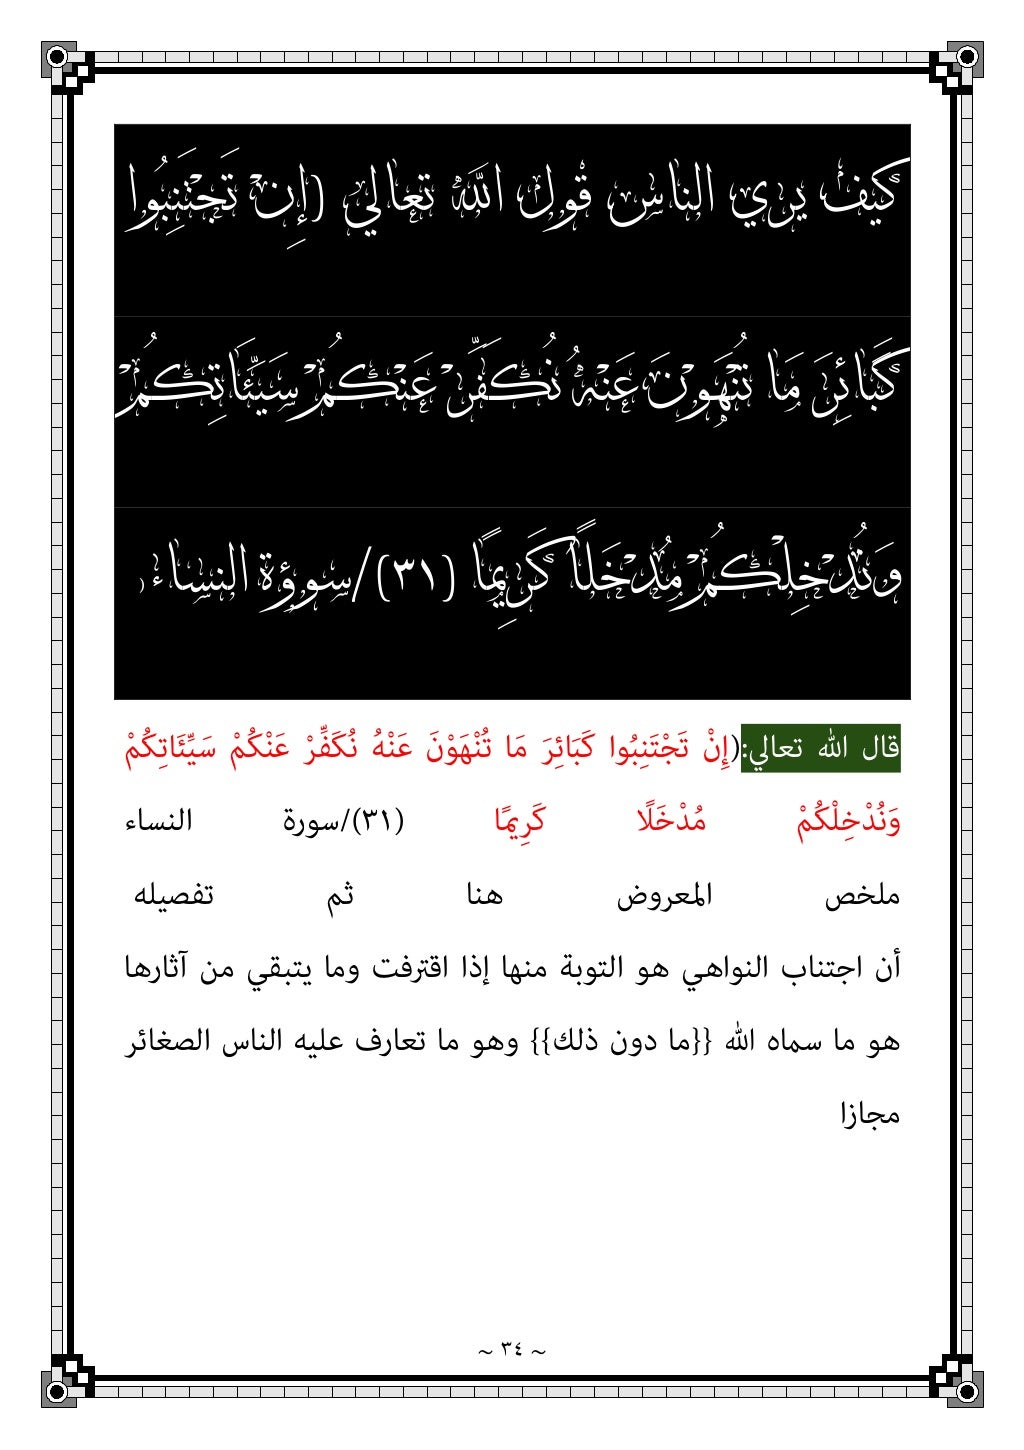 كيف يري الناس قول الله تعالي (إِنْ تَجْتَنِبُوا
كَبَائِرَ مَا تُنْهَوْنَ عَنْهُ نُكَفِّرْ عَنْكُمْ سَيِّئَاتِكُمْ
وَنُدْخِلْكُمْ مُدْخَلًا كَرِيمًا (٣١)/سورة النساء (
قال الله تعالي:(إِنْ تَجْتَنِبُوا كَبَائِرَ مَا تُنْهَوْنَ عَنْهُ نُكَفِّرْ عَنْكُمْ سَيِّئَاتِكُمْ
وَنُدْخِلْكُمْ مُدْخَلًا كَرِيمًا (٣١)/سورة النساء
ملخص المعروض هنا ثم تفصيله
أن اجتناب النواهي هو التوبة منها إذا اقترفت وما يتبقي من آثارها
هو ما سماه الله {{ما دون ذلك}} وهو ما تعارف عليه الناس الصغائر
مجازا
~ ٣٤ ~